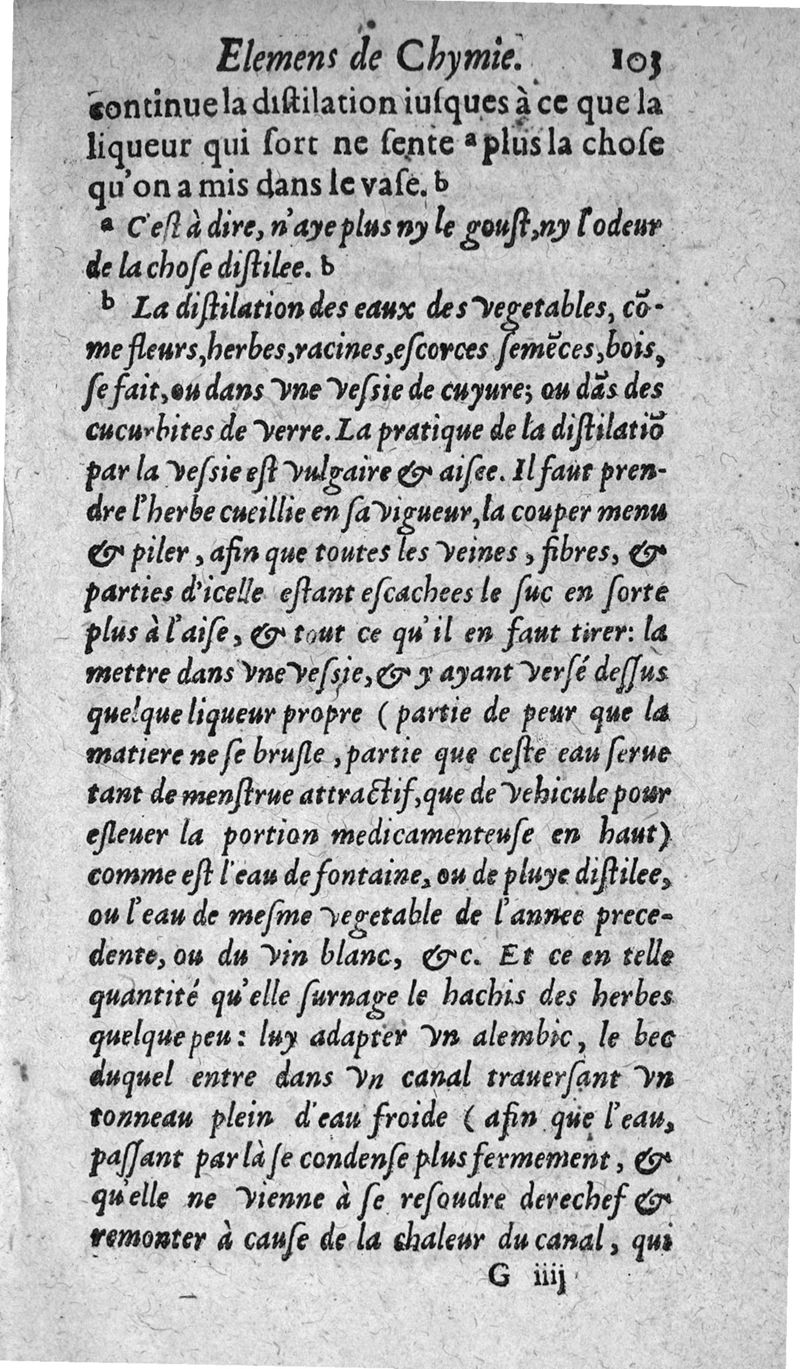 Elemens de Chymie. 103
continue la distilation iusques à ce que la
liqueur qui sort ne sente ᵃ plus la chose
qu'on a mis dans le vase. ᵇ
ᵃ C'est à dire, n'aye plus ny le goust, ny l'odeur
de la chose distilee. ᵇ
ᵇ La distilation des eaux des vegetables, cō-
me fleurs, herbes, racines, escorces semēces, bois,
se fait, ou dans vne vessie de cuyure; ou dãs des
cucurbites de verre. La pratique de la distilatiō
par la vessie est vulgaire & aisee. Il faut pren-
dre l'herbe cueillie en sa vigueur, la couper menu
& piler, afin que toutes les veines, fibres, &
parties d'icelle estant escachees le suc en sorte
plus à l'aise, & tout ce qu'il en faut tirer: la
mettre dans vne vessie, & y ayant versé dessus
quelque liqueur propre (partie de peur que la
matiere ne se brusle, partie que ceste eau serue
tant de menstrue attractif, que de vehicule pour
esleuer la portion medicamenteuse en haut)
comme est l'eau de fontaine, ou de pluye distilee,
ou l'eau de mesme vegetable de l'annee prece-
dente, ou du vin blanc, &c. Et ce en telle
quantité qu'elle surnage le hachis des herbes
quelque peu: luy adapter vn alembic, le bec
duquel entre dans vn canal trauersant vn
tonneau plein d'eau froide (afin que l'eau,
passant par là se condense plus fermement, &
qu'elle ne vienne à se resoudre derechef &
remonter à cause de la chaleur du canal, qui
G iiij